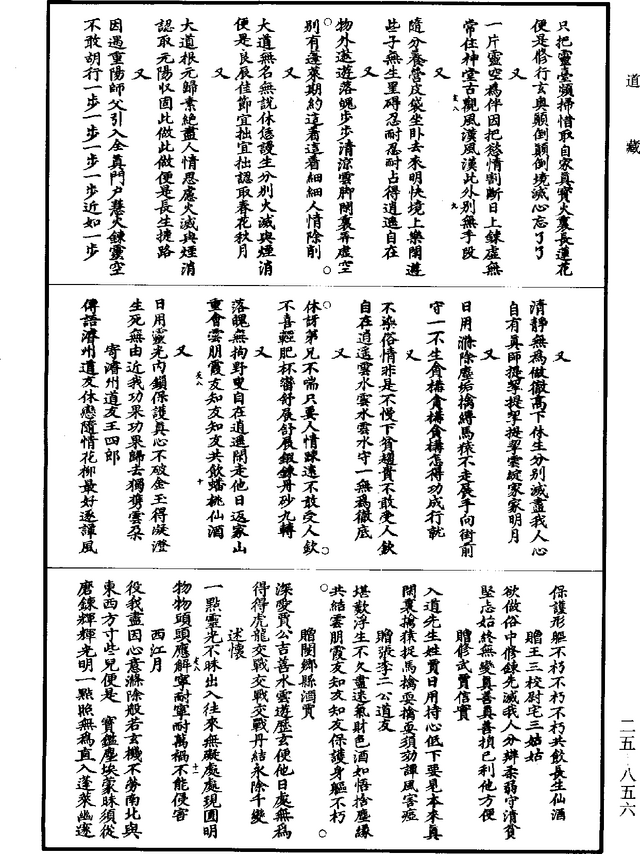 道藏
只把靈臺頻掃惜取自家真寶火裏長蓮花
便是修行玄奧顛倒顛倒境滅心忘了了
又
一片靈空為伴因把慾情割斷日上鍊虛無
常住神堂古觀風漢風漢此外別無手段
又
隨分養營皮袋坐卧去來明快境上樂閑遊
些子無生罣碍忍耐忍耐占得逍遙自在
又
物外遨遊落魄步步清涼雲脚閑裏弄虛空
別有蓬萊期約這着這着細細人情除削
又
大道無名無說休恁護生分別火滅與煙消
便是良辰佳節宜拙宜拙認取春花秋月
又
大道根元歸素絕盡人情思慮火滅與煙消
認取元陽收固此做此做便是長生捷路
又
因遇重陽師父引入全真門户慧火鍊靈空
不敢胡行一步一步一步一步近如一步
又
清靜無為做徹高下休生分別滅盡我人心
自有真師提挈提挈提挈雲綻家家明月
又
日用滌除塵垢擒縛馬猿不走展手向街前
守一不生貪搆貪搆貪搆怎得功成行就
又
不染俗情非是不慢下貧趨貴不敢受人欽
自在逍遙雲水雲水雲水守一無為徹底
又
休訝弟兄不喘只要人情踈遠不敢受人欽
不喜輕肥杯醬舒展舒展鍛鍊丹砂九轉
又
落魄無拘野叟自在逍遙閑走他日返家山
重會雲朋霞友知友知友共飲蟠桃仙酒
又
日用靈光內鎖保護真心不破金玉得凝澄
生死無由近我功果功果歸去獨携雲朵
寄濟州道友王四郎
傳語濟州道友休戀隨情花柳最好逐譚風
保護形軀不朽不朽不朽共飲長生仙酒
贈王三校尉宅三姑姑
欲做俗中修鍊先滅我人分辨柔弱守清貧
堅志始終無變真善真善損己利他方便
贈修武賈信實
入道先生姓賈日用持心低下要見本來真
閑裏擒猿捉馬擒耍擒耍須効譚風害瘂
贈張李二公道友
堪歎浮生不久盡逐氣財色酒如悟捨塵緣
共結雲朋霞友知友知友保護身軀不朽
贈閿鄉縣酒賈
深愛賈公吉善水雲遊歷玄便他日處無為
得得虎龍交戰交戰交戰丹結永除千變
述懷
一點靈光不昧出入往來無礙處處現圓明
物物頭頭應解寧耐寧耐萬禍不能侵害
西江月
役我盡因心意滌除般若玄機不勞南北與
東西方寸些兒便是 寶鑑塵埃蒙昧須從
磨鍊輝輝光明一點照無為直入蓬萊幽邃
二五·八五六